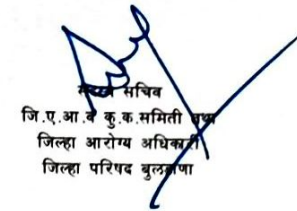 सदस्य सचिव
जि.ए.आ.व कु.क.समिती तथा
जिल्हा आरोग्य अधिकारी
जिल्हा परिषद बुलढाणा